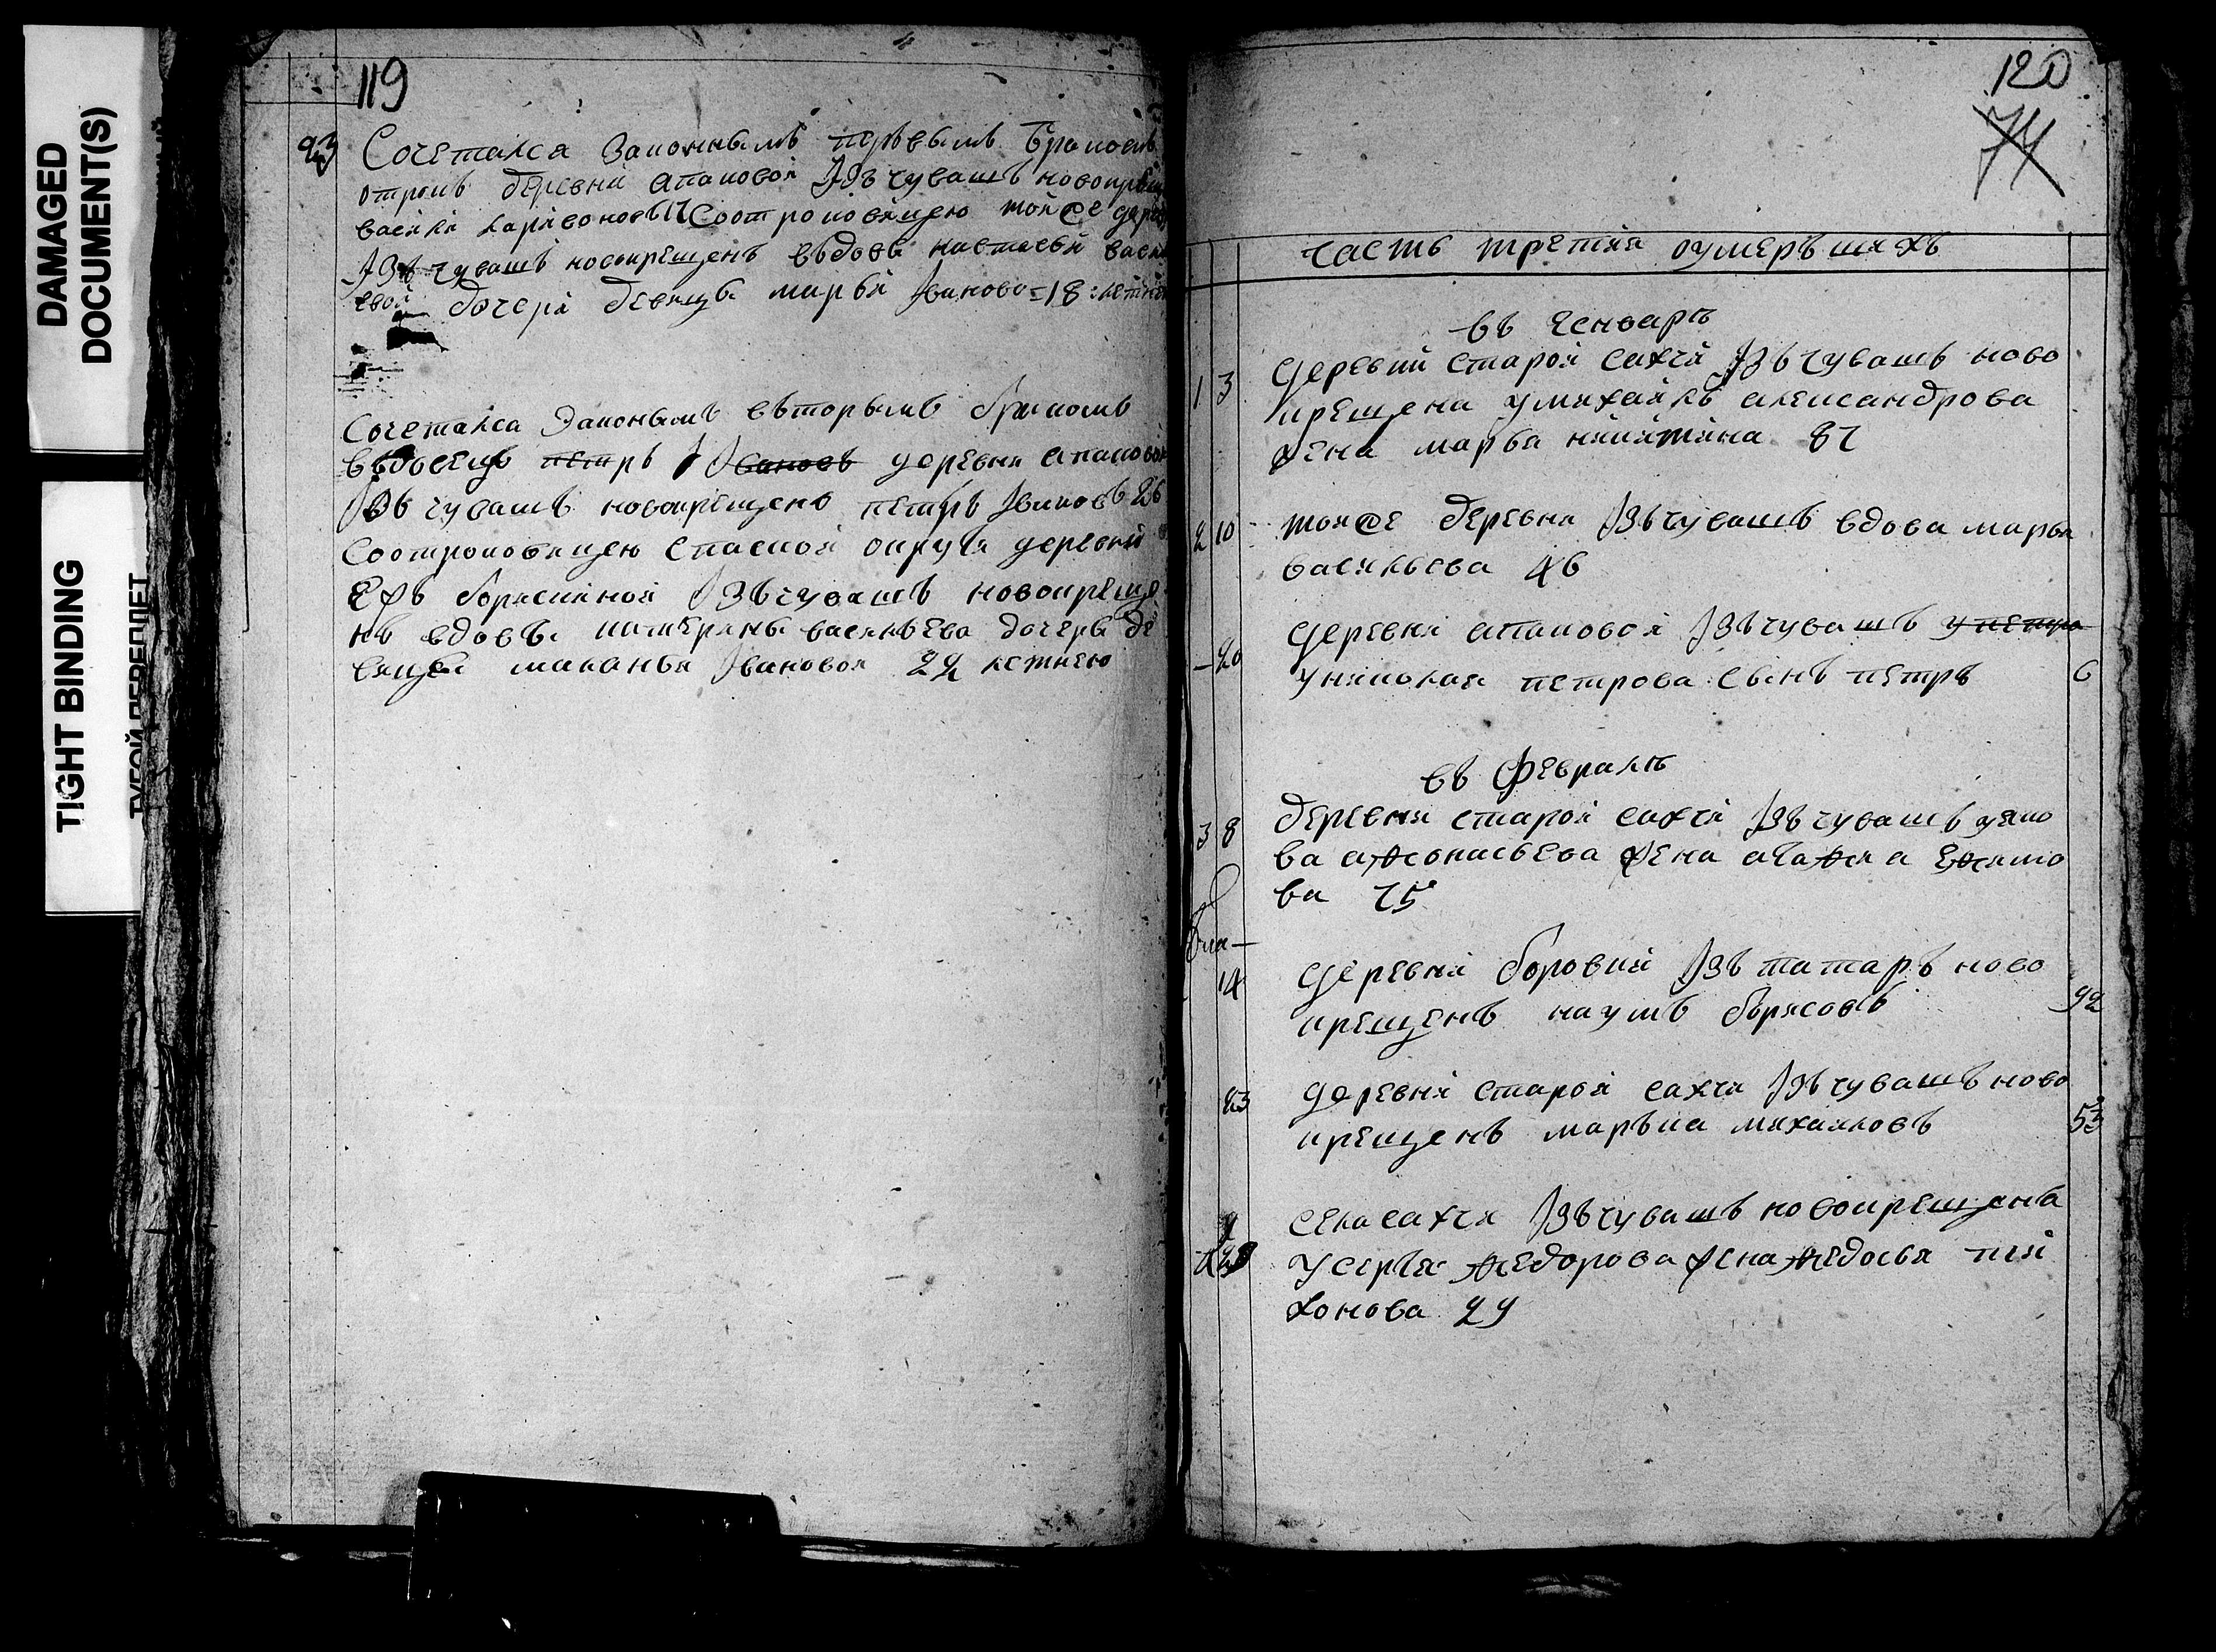 DAMAGED
DOCUMENT(S)
TIGHT BINDING
ТУГОЙ ПЕРЕПЛЕТ
119
23 Сочетался законнымъ первымъ бракомъ
отрокъ деревни апаковой Jзъ чувашъ новокрещ
василя ларивоновъ 17 Соотроковицею тояже дере
Jзъ чувашъ новокрещенъ въдовы настасьи васил
евой дочери девицы марьи Jвановой 18 летнею
Сочетался Законымъ въторымъ бракомъ
въдовецъ петръ Jвановъ деревни апаковой
Jзъ чувашъ новокрещенъ петръ Jвановъ 26
Соотроковицею спаской округи деревни
борискиной Jзъ чувашъ новокреще
нъ вдовы катерины васильева дочери де
вицы маланьи Jвановой 22 летнею
120
74
часть третия оумеръшихъ
въ генваре
1 3 деревни старой сахчи Jзъ чувашъ ново
крещена у михайлы александрова
жена марья никитина 87
2 10 тояже деревни Jзъ чувашъ вдова марья
васильева 46
20 деревни апаковой Jзъ чувашъ у петра
у николая петрова сынъ петръ 6
въ Феврале
3 8 деревни старой сахчи Jзъ чувашъ
ва афонасьева жена агафия
ва 75
14 деревни боровки Jзъ татаръ ново
крещенъ наумъ борисовъ 92
23 деревни старой сахчи Jзъ чувашъ ново
крещенъ марька михаиловъ 53
села сахчи Jзъ чувашъ новокрещена
у сергея федорова жена федосья ти
хонова 29